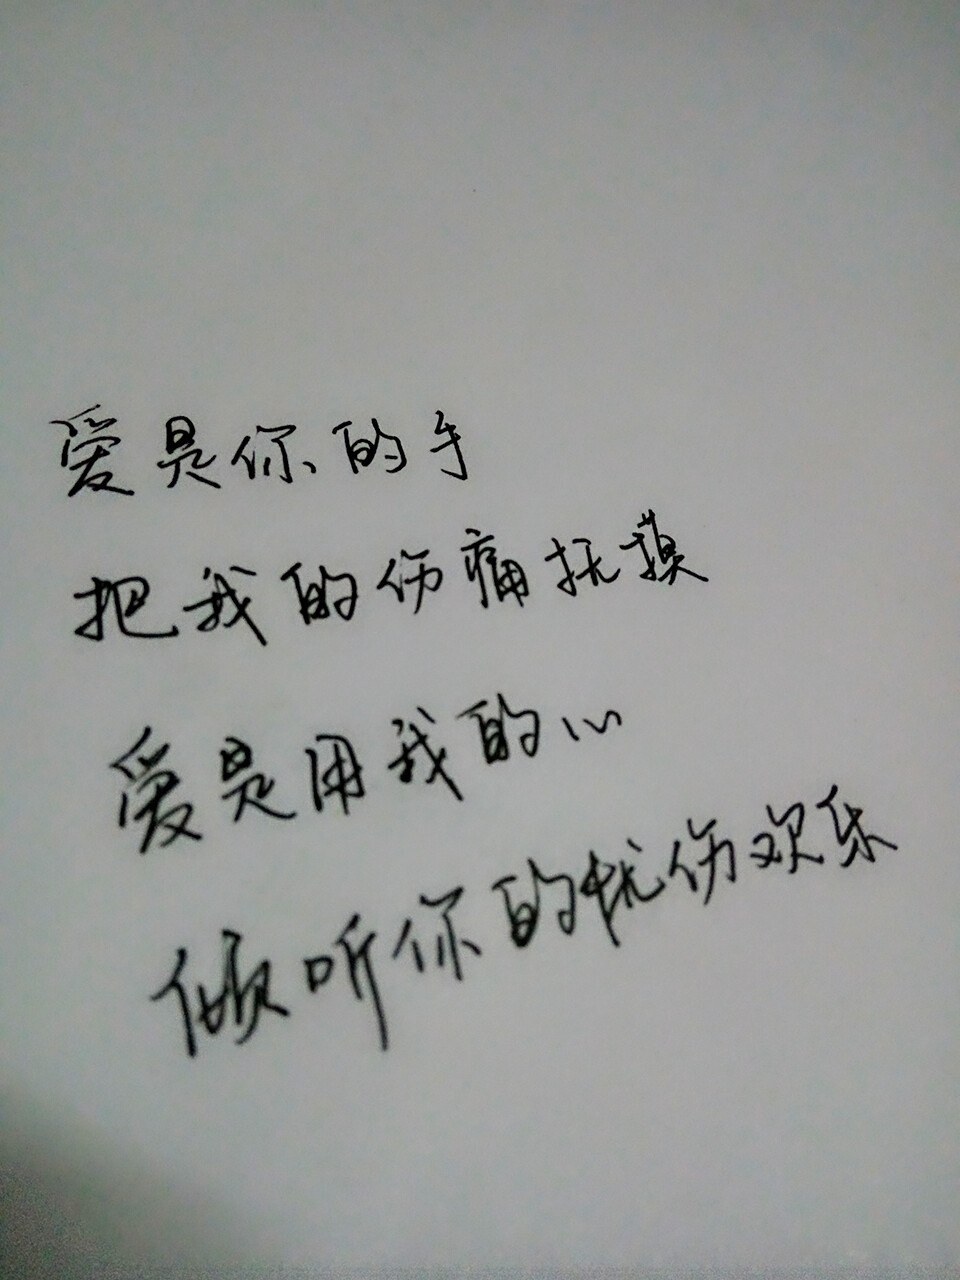 爱是你的手
把我的伤痛抚摸
爱是用我的心
倾听你的忧伤欢乐